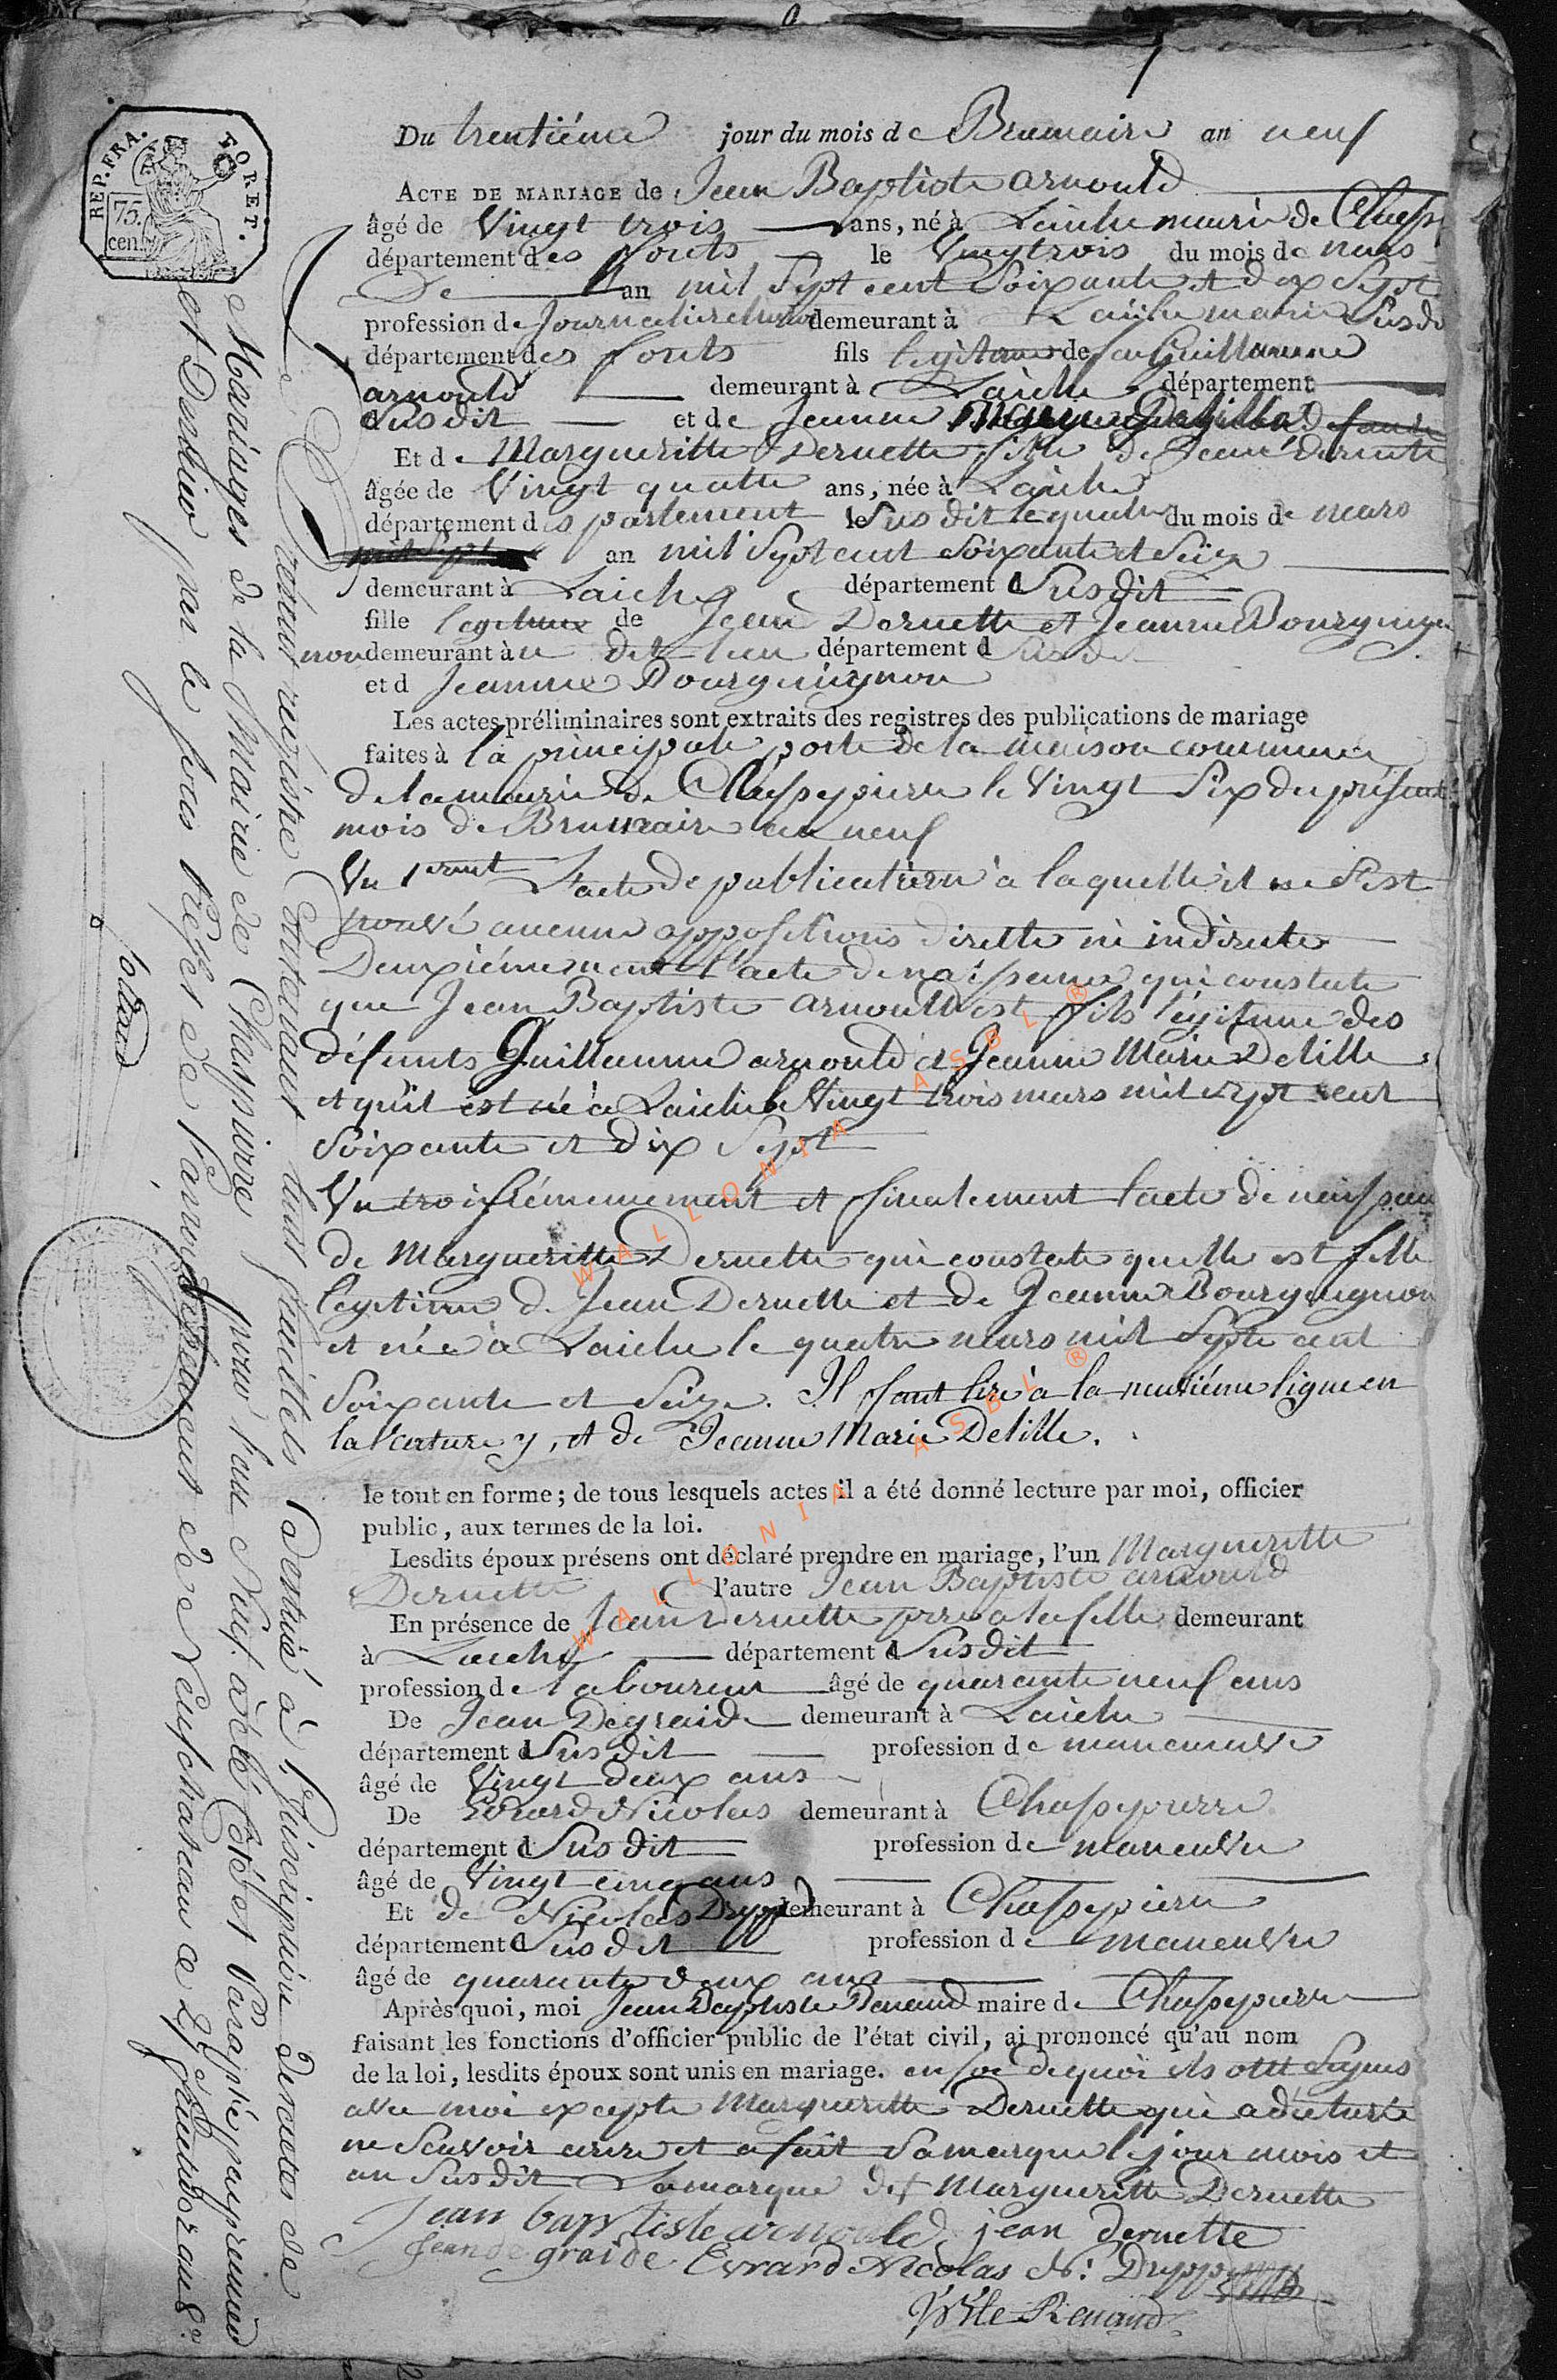 REP. FRA.
FORET.
75.
cen.
Du trentiéme jour du mois de Brumaire an neuf
ACTE DE MARIAGE de Jean Baptiste arnould
âgé de Vingt trois ans, né à Laiche mairie de Chassp
département des forets le Vingtrois du mois de mars
De an mil Sept cent Soixante et dix Sept
profession de Journalier demeurant à Laiche mairie Susdi
département des forets fils légitime de feu Guillaume
arnould demeurant à Laiche département
Susdit et de Jeanne
Et de Margueritte Deruette fille de Jean Deruette
âgée de Vingt quatre ans, née à Laiche
département ds partement le Susdit le quatre du mois de mars
an mil Sept cent Soixante et Seize
demeurant à Laiche département d Susdit
fille legitime de Jean Deruette et Jeanne Bourguig
non demeurant à u dit lieu département d Susdi
et d Jeanne Bourguignon
Les actes préliminaires sont extraits des registres des publications de mariage
faites à la principale porte de la maison commune
de la mairie de Chassepierre le Vingt Six du présent
mois de Brumaire an neuf
Vu 1erent l'acte de publication à laquelle il ne S'est
trouvé aucune oppositions dirette ni indirecte
Deuxiémement l'acte de naissance qui constate
que Jean Baptiste arnould est fils légitime des
défunts Guillaume arnould et Jeanne Marie Delille
et qu'il est né à Laiche le Vingt trois mars mil sept cent
Soixante et dix Sept
Vu troisiémemement et finalement l'acte de naissan
de Margueritte Deruette qui constate quelle est fille
legitime de Jean Deruette et de Jeanne Bourguignon
et née à Laiche le quatre mars mil Septe cent
Soixante et Seize. Il faut lire à la neuviéme ligne en
la rature y, et de Jeanne Marie Delille.
le tout en forme; de tous lesquels actes il a été donné lecture par moi, officier
public, aux termes de la loi.
Lesdits époux présens ont déclaré prendre en mariage, l'un Margueritte
Deruette l'autre Jean Baptiste arnould
En présence de Jean Deruette pere a la fille demeurant
à Laiche département d Susdit
profession de laboureur âgé de quarante neuf ans
De Jean Degraide demeurant à Laiche
département d Susdit profession de maneuvre
âgé de Vingt deux ans
De Evrard Nicolas demeurant à Chassepierre
département d Susdit profession de maneuvre
âgé de Vingt cinq ans
Et de Nicolas Drypp demeurant à Chassepierre
département d Susdit profession de maneuvre
âgé de quarante deux ans
Après quoi, moi Jean Baptiste Renaud maire de Chassepierre
faisant les fonctions d'officier public de l'état civil, ai prononcé qu'au nom
de la loi, lesdits époux sont unis en mariage. en foi de quoi ils ont Signés
avec moi excepte Margueritte Deruette qui a déclaré
ne Scavoir ecrire et a fait Sa marque le jour mois et
an Susdit La marque de + Margueritte Deruette
jean baptiste arnould jean deruette
jean de graide Evrard Nicolas N: Drypp
JBte Renaud
Le présent registre Contenant huit feuillets, destiné à l'inscription des actes de
Mariages de la Mairie de Chassepierre pour l'an Neuf, a été Coté et Paraphé, par premier
et Dernier par le sous Prefet de l'arrondissement de Neufchateau ce 2 fructidor an 8
W A L L O N I A A S B L ®
W A L L O N I A A S B L ®